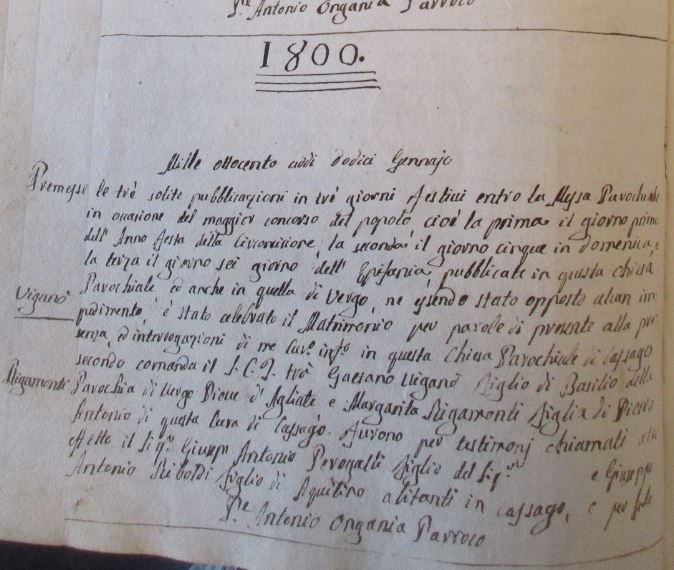 P.e Antonio Ongania Parroco
1800.
Mille ottocento addi dodici Gennajo
Premesse le trè solite pubblicazioni in trè giorni festivi entro la Messa Parochiale
in occasione del maggior concorso del popolo, cioè la prima il giorno primo
dell' Anno festa della Circoncisione, la seconda il giorno cinque in domenica, e
la terza il giorno sei giorno dell' Epifania, pubblicate in questa chiesa
Viganò
Parochiale ed anche in quella di Vergo, ne essendo stato opposto alcun im
pidimento, è stato celebrato il Matrimonio per parole di presente alla pre
senza, ed interrogazioni di me Cur.o inf.o in questa Chiesa Parochiale di Cassago
secondo comanda il S.C.T. trà Gaetano Viganò figlio di Basilio della
Rigamonti
Parochia di Vergo Pieve d'Agliate e Margarita Rigamonti figlia di Pietro
Antonio di questa Cura di Cassago. Furono per testimonj chiamati a tal
effetto il Sig.r Giusep. Antonio Perogalli figlio del Sig.r e Giuseppe
Antonio Riboldi figlio di Aquilino abitanti in Cassago, e per fede
P.e Antonio Ongania Parroco